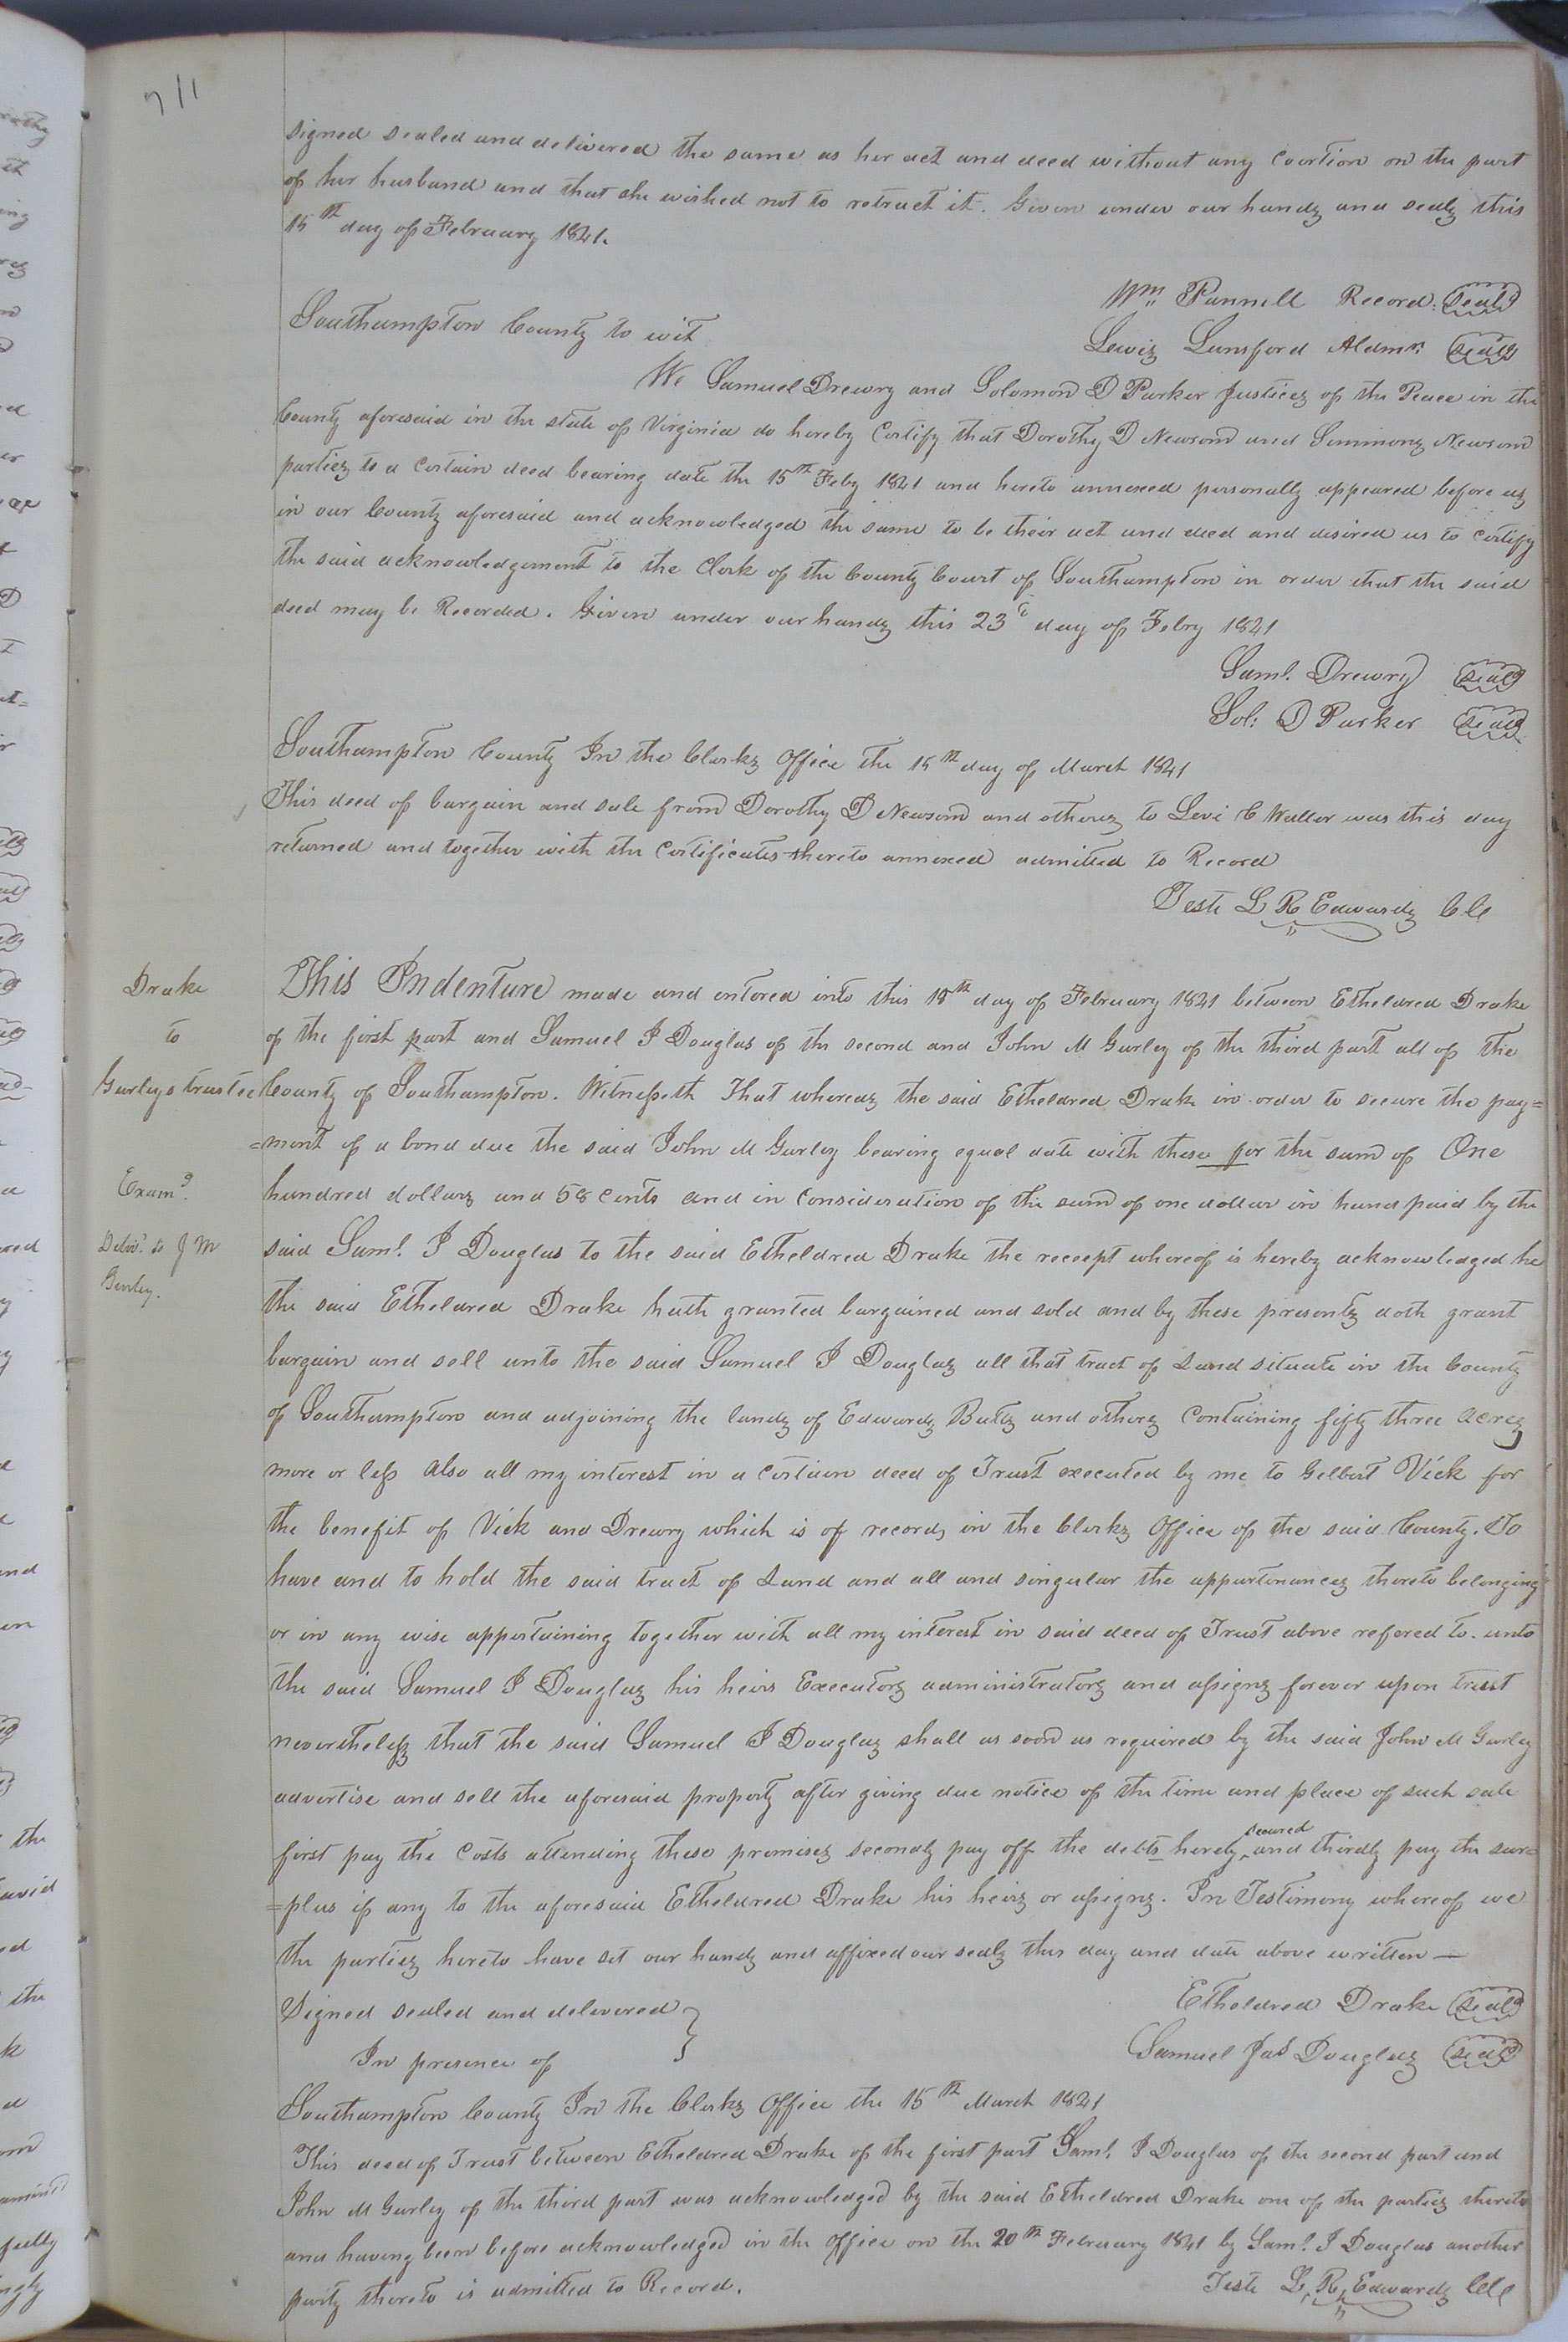 711
signed sealed and delivered the same as her act and deed without any coertion on the part
of her husband and that she wished not to retract it. Given under our hands and seals this
15th day of February 1821.
Wm Pannell Record: seal
Southampton County to wit
Lewis Lunsford Aldmn: seal
We Samuel Drewry and Solomon D Parker Justices of the Peace in the
County aforesaid in the state of Virginia do hereby certify that Dorothy D Newsom and Simmons Newsom
parties to a certain deed bearing date the 15th Feby 1821 and hereto annexed personally appeared before us
in our County aforesaid and acknowledged the same to be their act and deed and desired us to certify
the said acknowledgement to the Clerk of the County Court of Southampton in order that the said
deed may be Recorded. Given under our hands this 23d day of Febry 1821
Saml. Drewry seal
Sol: D Parker seal
Southampton County In the Clerks Office the 15th day of March 1821
This deed of bargain and sale from Dorothy D Newsom and others to Levi C Waller was this day
returned and together with the Certificates thereto annexed admitted to Record
Teste L R Edwards ClC
Drake
to
Gurleys trustee
Examd.
Delivd. to J M
Gurley.
This Indenture made and entered into this 15th day of February 1821 between Etheldred Drake
of the first part and Samuel I Douglas of the second and John M Gurley of the third part all of the
County of Southampton. Witnesseth That whereas the said Etheldred Drake in order to secure the pay=
=ment of a bond due the said John M Gurley bearing equal date with these for the sum of One
hundred dollars and 58 cents and in consideration of the sum of one dollar in hand paid by the
said Saml. I Douglas to the said Etheldred Drake the receept whereof is hereby acknowledged he
the said Etheldred Drake hath granted bargained and sold and by these presents doth grant
bargain and sell unto the said Samuel I Douglas all that tract of Land situate in the County
of Southampton and adjoining the lands of Edwards Butts and others containing fifty three acres
more or less also all my interest in a certain deed of Trust executed by me to Gelbert Vick for
the benefit of Vick and Drewry which is of record in the Clerks Office of the said County. To
have and to hold the said tract of Land and all and singular the appurtenances thereto belonging
or in any wise appertaining together with all my interest in said deed of Trust above refered to unto
the said Samuel I Douglas his heirs Executors administrators and assigns forever upon trust
nevertheless that the said Samuel I Douglas shall as soon as required by the said John M Gurley
advertise and sell the aforesaid property after giving due notice of the time and place of such sale
first pay the costs attending these premises secondly pay off the debts hereby secured and thirdly pay the sur=
=plus if any to the aforesaid Etheldred Drake his heirs or assigns. In Testimony whereof we
the parties hereto have set our hands and affixed our seals this day and date above written —
Signed sealed and delivered }
Etheldred Drake seal
In presence of
Samuel Jas Douglas seal
Southampton County In the Clerks Office the 15th March 1821
This deed of Trust between Etheldred Drake of the first part Saml. I Douglas of the second part and
John M Gurley of the third part was acknowledged by the said Etheldred Drake one of the parties thereto
and having been before acknowledged in the office on the 20th February 1821 by Saml. I Douglas another
party thereto is admitted to Record.
Teste L R Edwards ClC